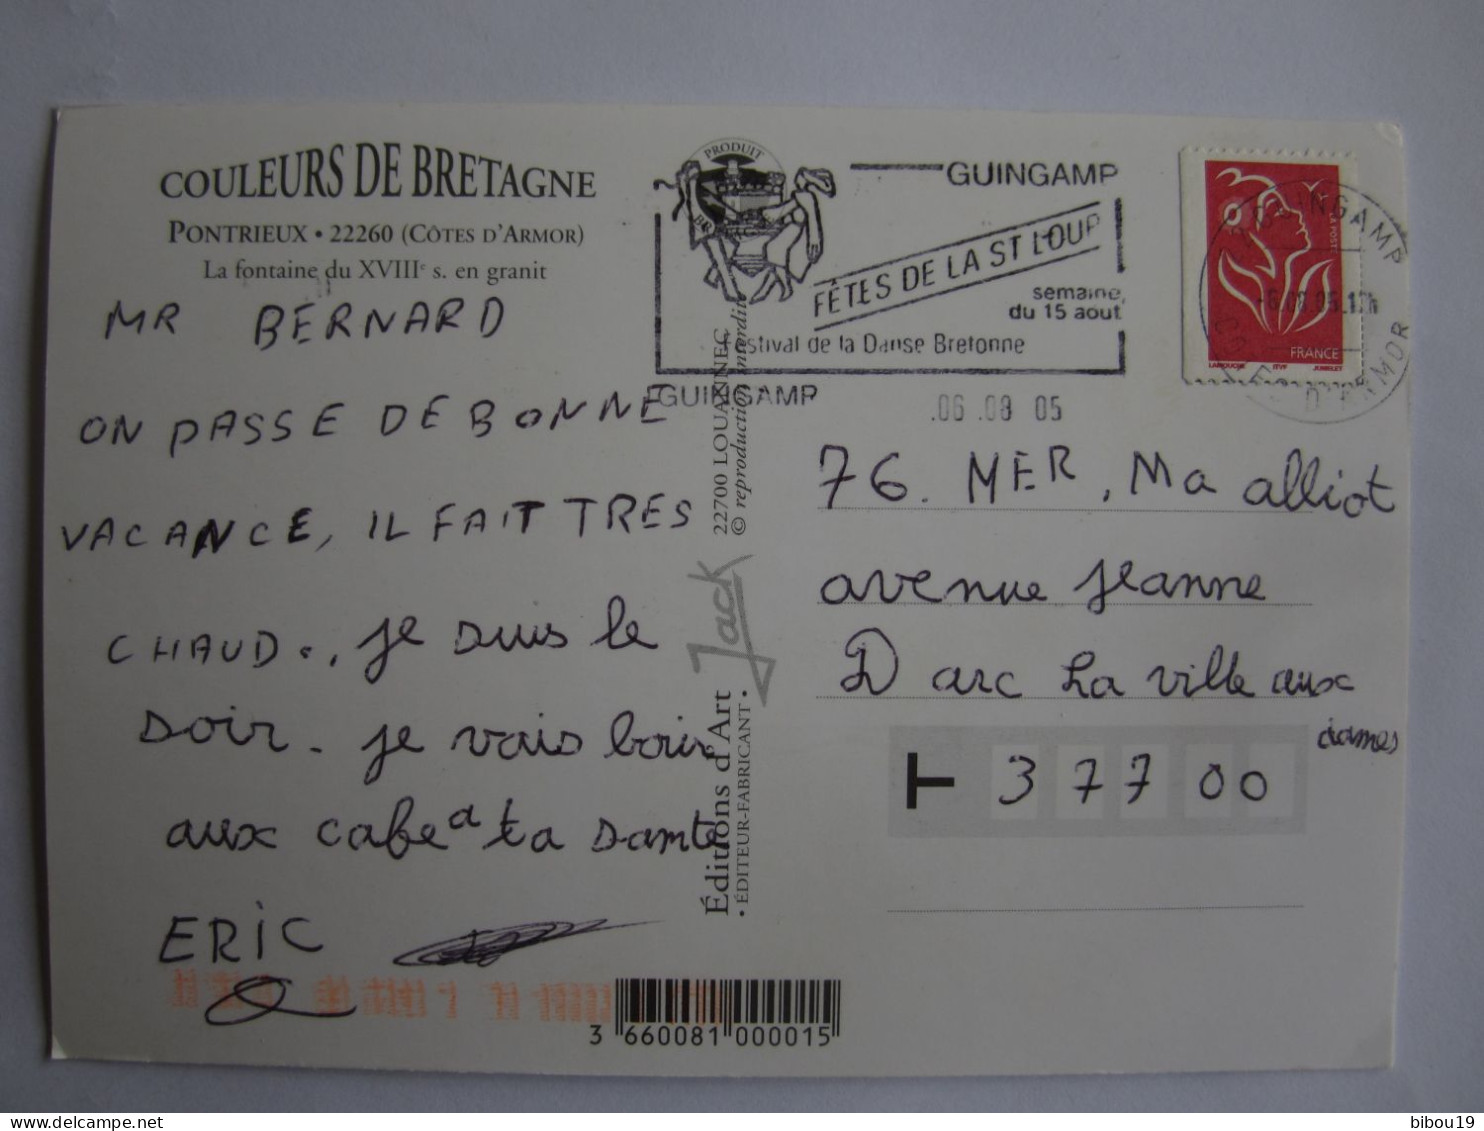 COULEURS DE BRETAGNE
PONTRIEUX • 22260 (CÔTES D'ARMOR)
La fontaine du XVIIIe s. en granit
MR BERNARD
ON PASSE DE BONNE
VACANCE, IL FAIT TRES
CHAUD., je suis le
soir. je vais boir
aux cafe a ta sante
ERiC
PRODUIT
GUINGAMP
FÊTES DE LA ST LOUP
semaine
du 15 aout
Festival de la Danse Bretonne
GUINGAMP
.06 .08 05
LA POSTE
FRANCE
LAMOUCHE ITVF JUMELET
GUINGAMP
D'ARMOR
76. MER, Ma alliot
avenue Jeanne
D arc La ville aux
dames
T 37700
Éditions d'Art Jack 22700 LOUANNEC
• ÉDITEUR-FABRICANT • © reproduction interdite
3 660081 000015
bibou19